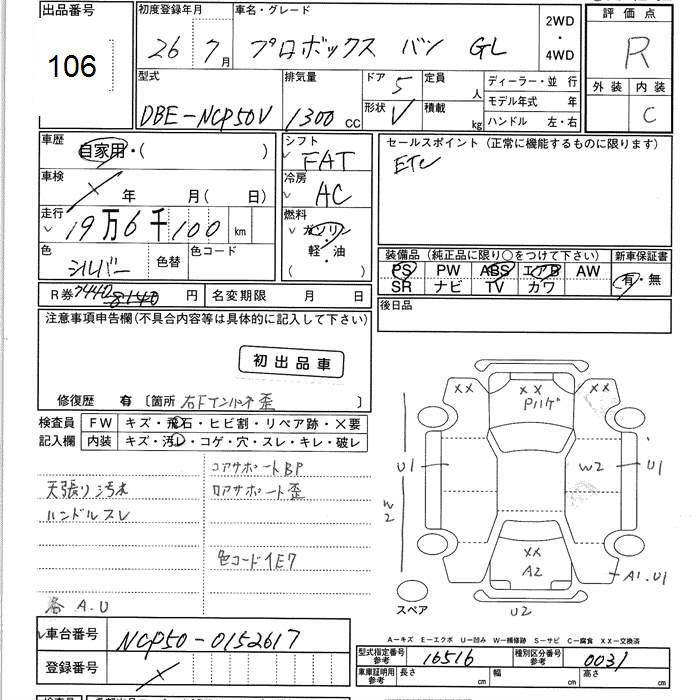 出品番号 初度登録年月 車名・グレード 2WD・4WD 評価点
106 26年 7月 プロボックス バン GL R
型式 排気量 ドア 5 定員 人 ディーラー・並行 外装 内装
DBE-NCP50V 1300cc 形状 V 積載 kg モデル年式 年 C
ハンドル 左・右
車歴 シフト セールスポイント(正常に機能するものに限ります)
自家用・( ) FAT ETC
車検 年 月(日) 冷房 AC
走行 19万6千100km 燃料 ガソリン
軽・油
( )
色 シルバー 色替 色コード
装備品(純正品に限り○をつけて下さい) 新車保証書
PS PW ABS エアB AW 有・無
SR ナビ TV カワ
R券 7440 8140円 名変期限 月 日 後日品
注意事項申告欄(不具合内容等は具体的に記入して下さい)
初出品車
修復歴 有 〔箇所 右Fインパネ歪 〕
検査員記入欄 FW キズ・飛石・ヒビ割・リペア跡・×要
内装 キズ・汚レ・コゲ・穴・スレ・キレ・破レ
コアサポートBP
天張り汚れ ロアサポート歪
ハンドルスレ
色コード1E7
各A.U
××
××
Pハゲ
××
U1
W2
W2
U1
××
A2
A1.U1
スペア
U2
A-キズ E-エクボ U-凹み W-補修跡 S-サビ C-腐食 XX-交換済
車台番号 NCP50-0152617
登録番号
型式指定番号 参考 16516 種別区分番号 参考 0031
車庫証明用 参考 長さ cm 幅 cm 高さ cm